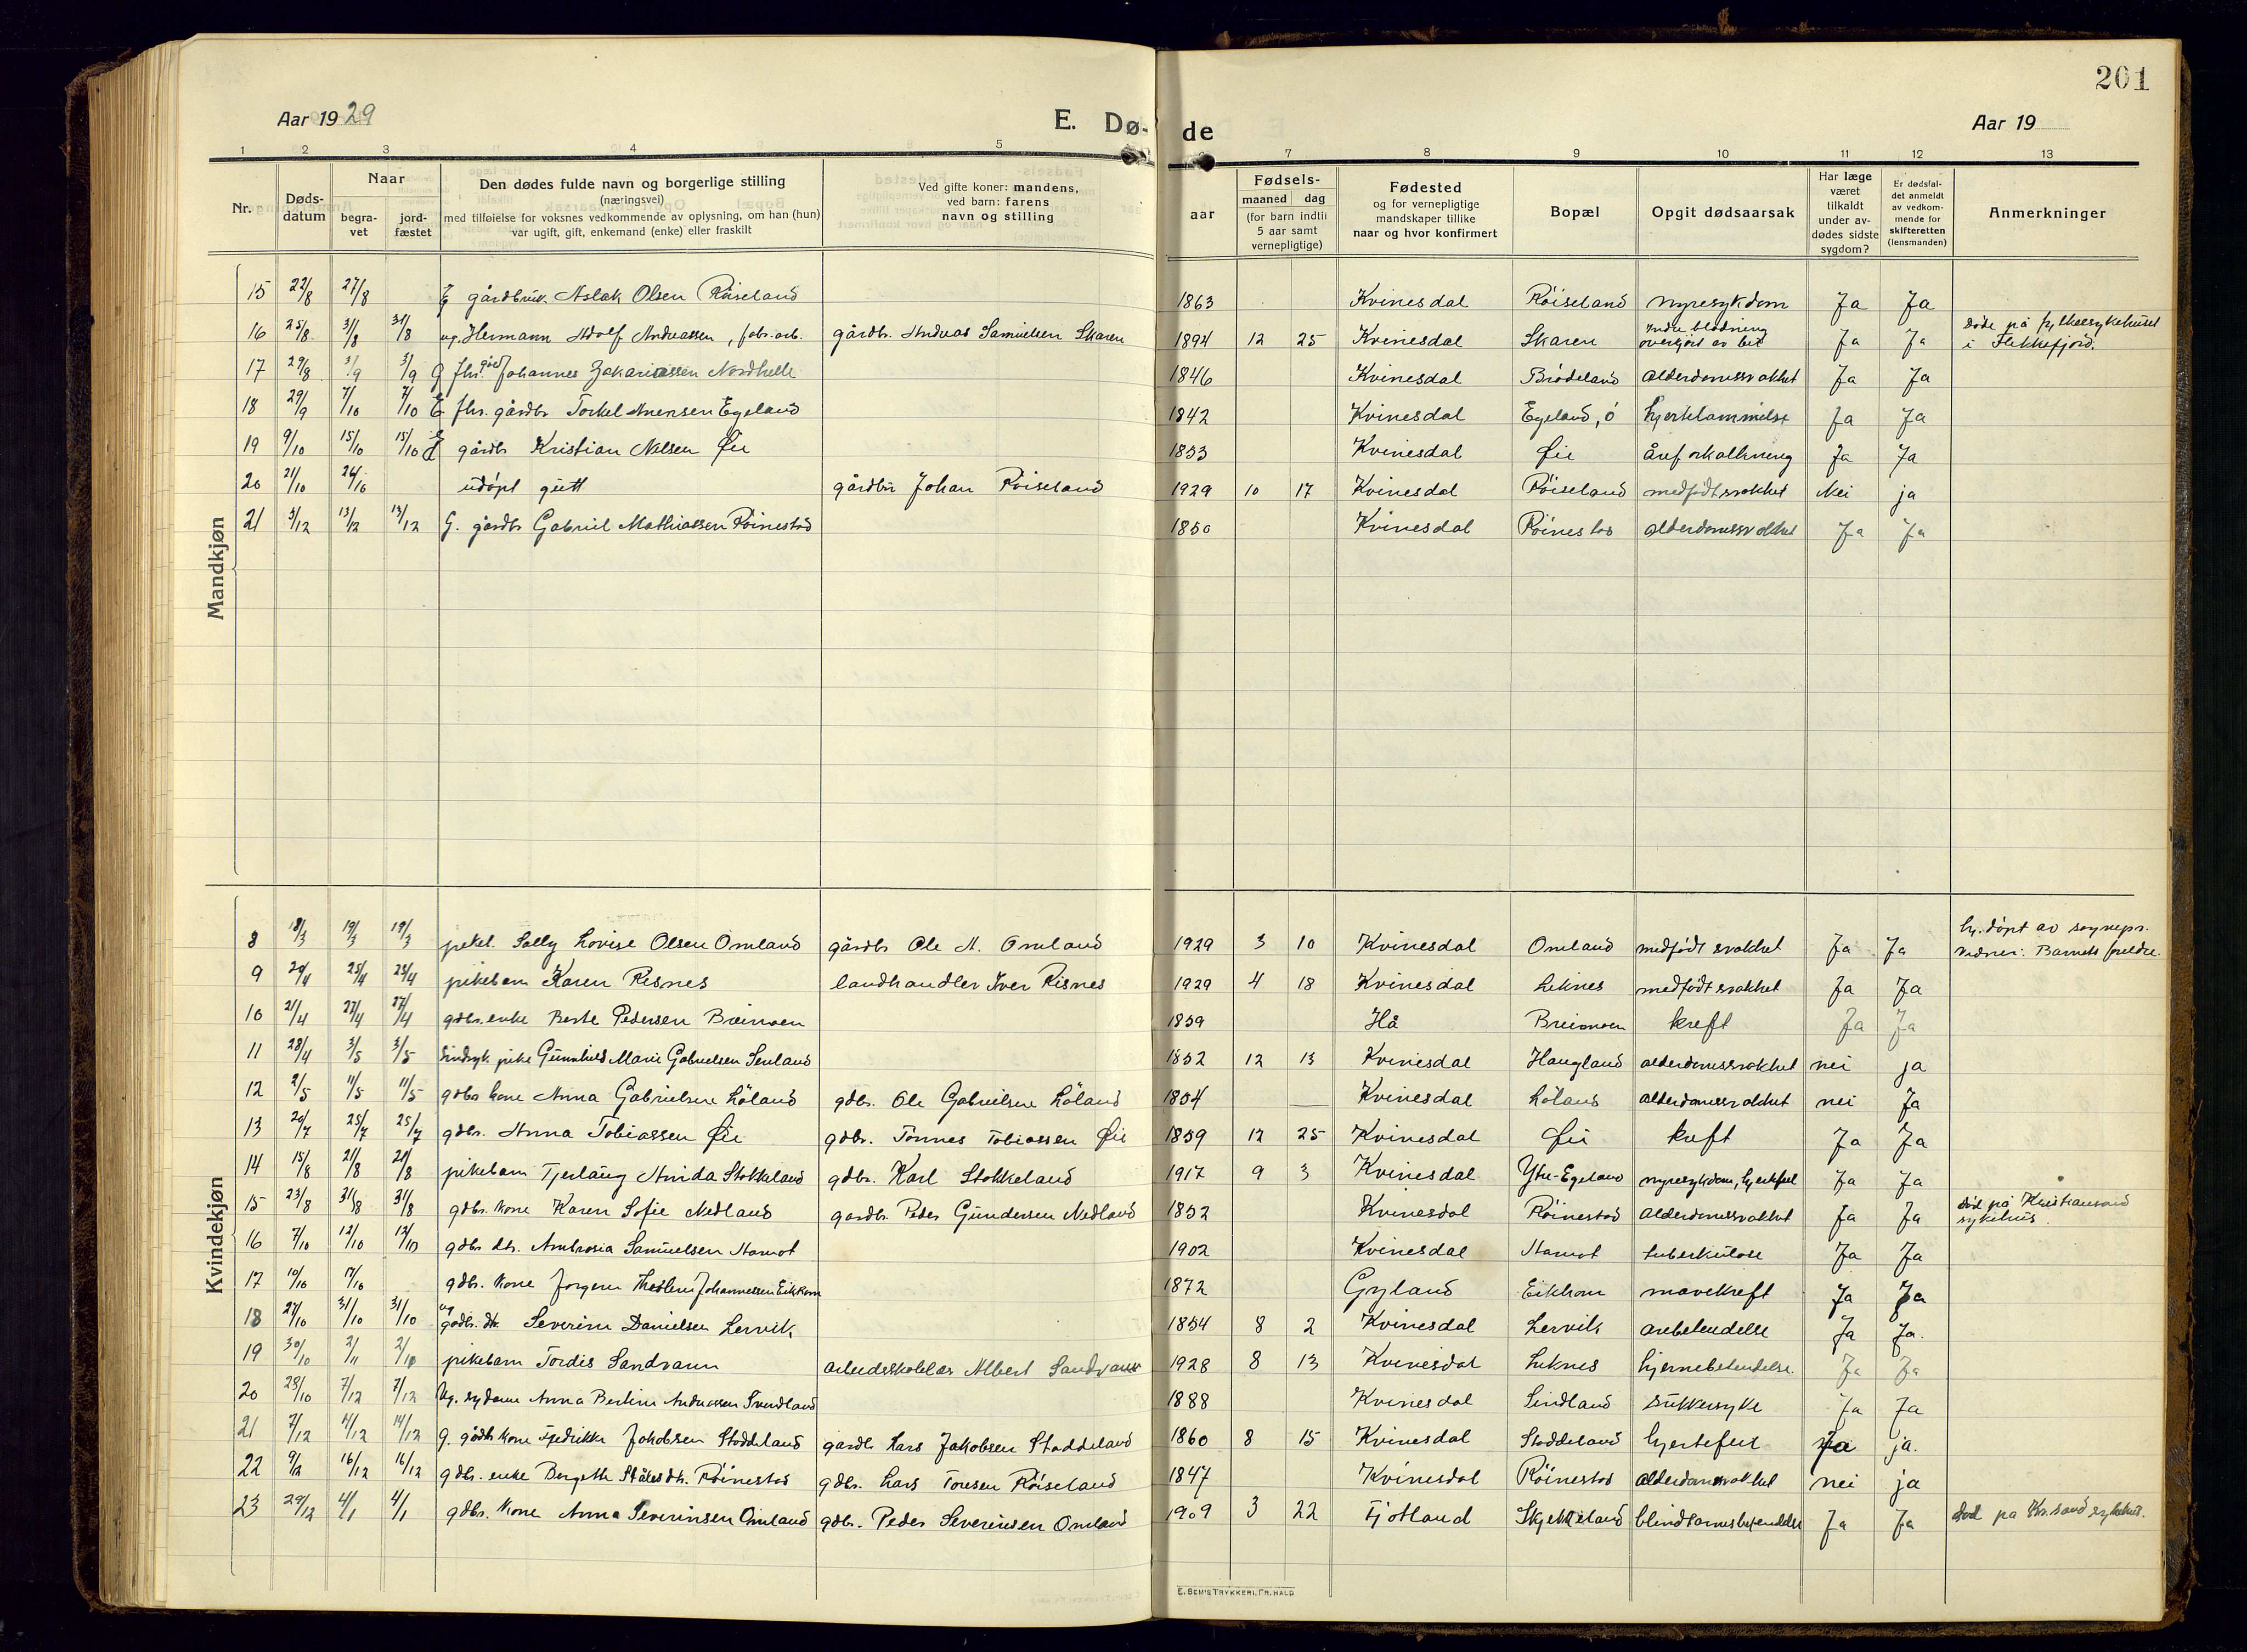 201
Aar 1929
E. Dø-
de
Aar 19
1 2 3 4 5 7 8 9 10 11 12 13
Nr.
Døds-
datum
Naar
begra-
vet
jord-
fæstet
Den dødes fulde navn og borgerlige stilling
(næringsvei)
med tilføielse for voksnes vedkommende av oplysning, om han (hun)
var ugift, gift, enkemand (enke) eller fraskilt
Ved gifte koner: mandens,
ved barn: farens
navn og stilling
Fødsels-
aar
maaned dag
(for barn indtil
5 aar samt
vernepligtige)
Fødested
og for vernepligtige
mandskaper tillike
naar og hvor konfirmert
Bopæl
Opgit dødsaarsak
Har læge
været
tilkaldt
under av-
dødes sidste
sygdom?
Er dødsfal-
det anmeldt
av vedkom-
mende for
skifteretten
(lensmanden)
Anmerkninger
Mandkjøn
15 22/8 27/8 E gårdbruk. Aslak Olsen Røiseland 1863 Kvinesdal Røiseland nyresykdom Ja Ja
16 25/8 31/8 31/8 ug. Hermann Adolf Andreassen, fabr. arb. gårdbr. Andreas Samuelsen Skaren 1894 12 25 Kvinesdal Skaren Indre blødning overkjørt av bil Ja Ja Døde på fylkessykehuset i Flekkefjord.
17 29/8 3/9 3/9 G fhr. gbr. Johannes Zakariassen Nordhelle 1846 Kvinesdal Brødeland alderdomssvakhet Ja Ja
18 29/9 7/10 7/10 E fhr. gårdbr Torkel Anensen Egeland 1842 Kvinesdal Egeland, ø hjertelammelse Ja Ja
19 9/10 15/10 15/10 E gårdbr Kristian Nilsen Øie 1853 Kvinesdal Øie åreforkalkning Ja Ja
20 21/10 26/10 udøpt gutt gårdbr Johan Røiseland 1929 10 17 Kvinesdal Røiseland medfødt svakhet Nei ja
21 5/12 13/12 13/12 G. gårdbr Gabriel Mathiassen Røinestad 1850 Kvinesdal Røinestad alderdomssvakhet Ja Ja
Kvindekjøn
8 18/3 19/3 19/3 pikeb. Solly Lovise Olsen Omland gårdbr Ole A. Omland 1929 3 10 Kvinesdal Omland medfødt svakhet Ja Ja hj. døpt av sognepr. Vidner: Barnets foreldre.
9 24/4 25/4 25/4 pikebarn Karen Risnes landhandler Iver Risnes 1929 4 18 Kvinesdal Liknes medfødt svakhet Ja Ja
10 21/4 27/4 27/4 gdbr. enke Berte Pedersen Breimoen 1859 Hå Breimoen kreft Ja Ja
11 28/4 3/5 3/5 sindsyk pike Gunnhild Marie Gabrielsen 1852 12 13 Kvinesdal Haugland alderdomssvakhet nei ja
12 2/5 11/5 11/5 gdbr kone Anna Gabrielsen Løland gdbr. Ole Gabrielsen Løland 1854 — Kvinesdal Løland alderdomssvakhet nei Ja
13 20/7 25/7 25/7 gdbr. Anna Tobiassen Øie gdbr. Tønnes Tobiassen Øie 1859 12 25 Kvinesdal Øie kreft Ja Ja
14 15/8 21/8 21/8 pikebarn Tjerlaug Arnida Stokkeland gdbr. Karl Stokkeland 1917 9 3 Kvinesdal Ytre-Egeland nyresykdom, hjertefeil Ja Ja
15 23/8 31/8 31/8 gdbr. kone Karen Sofie Nedland gardbr. Peder Gundersen Nedland 1852 Kvinesdal Røinestad alderdomssvakhet Ja Ja død på Kristiansand sykehus.
16 7/10 12/10 12/10 gdbr dtr. Ambrosia Samuelsen Hamot 1902 Kvinesdal Hamot tuberkulose Ja Ja
17 10/10 17/10 gdbr. kone Jorgen Johannessen Eikhom 1872 Gyland Eikhom mavekreft Ja Ja
18 27/10 31/10 31/10 ug gdbr. dtr. Severine Danielsen Lervik 1854 8 2 Kvinesdal Lervik Ja Ja.
19 30/10 2/11 2/11 pikebarn Tordis Sandvann arbeidsskolelær Albert Sandvann 1928 8 13 Kvinesdal Liknes hjernebetendelse. Ja Ja
20 28/10 7/12 7/12 Ug. sydame Anna Bertine Andreassen 1888 Kvinesdal Sindland sukkersyke Ja Ja
21 7/12 14/12 14/12 G. gårdbr kone Fredrikke Jakobsen Stoddeland gardb. Lars Jakobsen Stoddeland 1860 8 15 Kvinesdal Stoddeland hjertefeil Ja ja.
22 9/12 16/12 16/12 gdbr. enke Bergette Ståledtr. Røinestad gdbr. Lars Toresen Røiseland 1847 Kvinesdal Røinestad alderdomssvakhet nei ja
23 29/12 4/1 4/1 gdbr. kone Anna Severinsen Omland gdbr. Peder Severinsen Omland 1909 3 22 Fjotland Skjekkeland blindtarmsbetendelse Ja Ja død på Kr.sand sykehus.
E. SEM'S TRYKKERI, FR. HALD